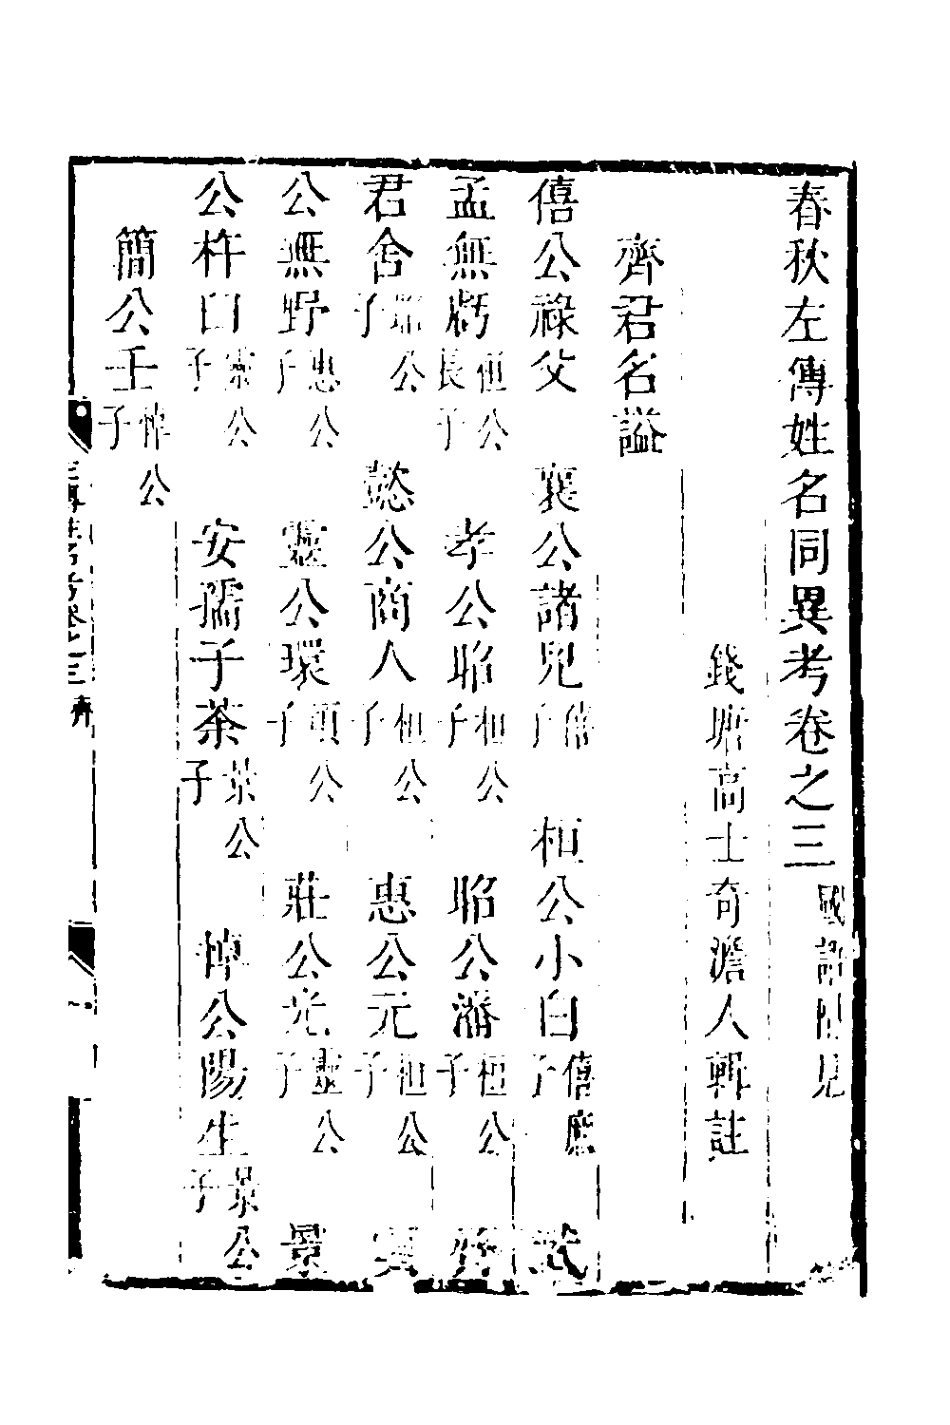 春秋左傳姓名同異考卷之三 國語附見
錢塘高士奇澹人輯註
齊君名謚
僖公祿父 襄公諸兒 僖子 桓公小白 僖庶子 武
孟無虧 桓公長子 孝公昭 桓公子 昭公潘 桓公子 齊
君舍 昭公子 懿公商人 桓公子 惠公元 桓公子 頃
公無野 惠公子 靈公環 頃公子 莊公光 靈公子 景
公杵臼 靈公子 安孺子荼 景公子 悼公陽生 景公子
簡公壬 悼公子
左傳姓名考卷之三 齊